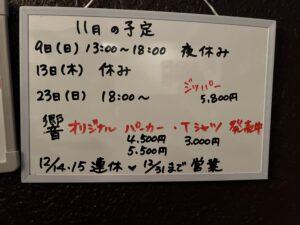 11月の予定
9日(日) 13:00〜18:00 夜休み
13日(木) 休み
23日(日) 18:00〜 ジッパー
5,800円
響 オリジナル パーカー・Tシャツ 発売中
4,500円 3,000円
5,500円
12/14.15 連休 12/31まで営業